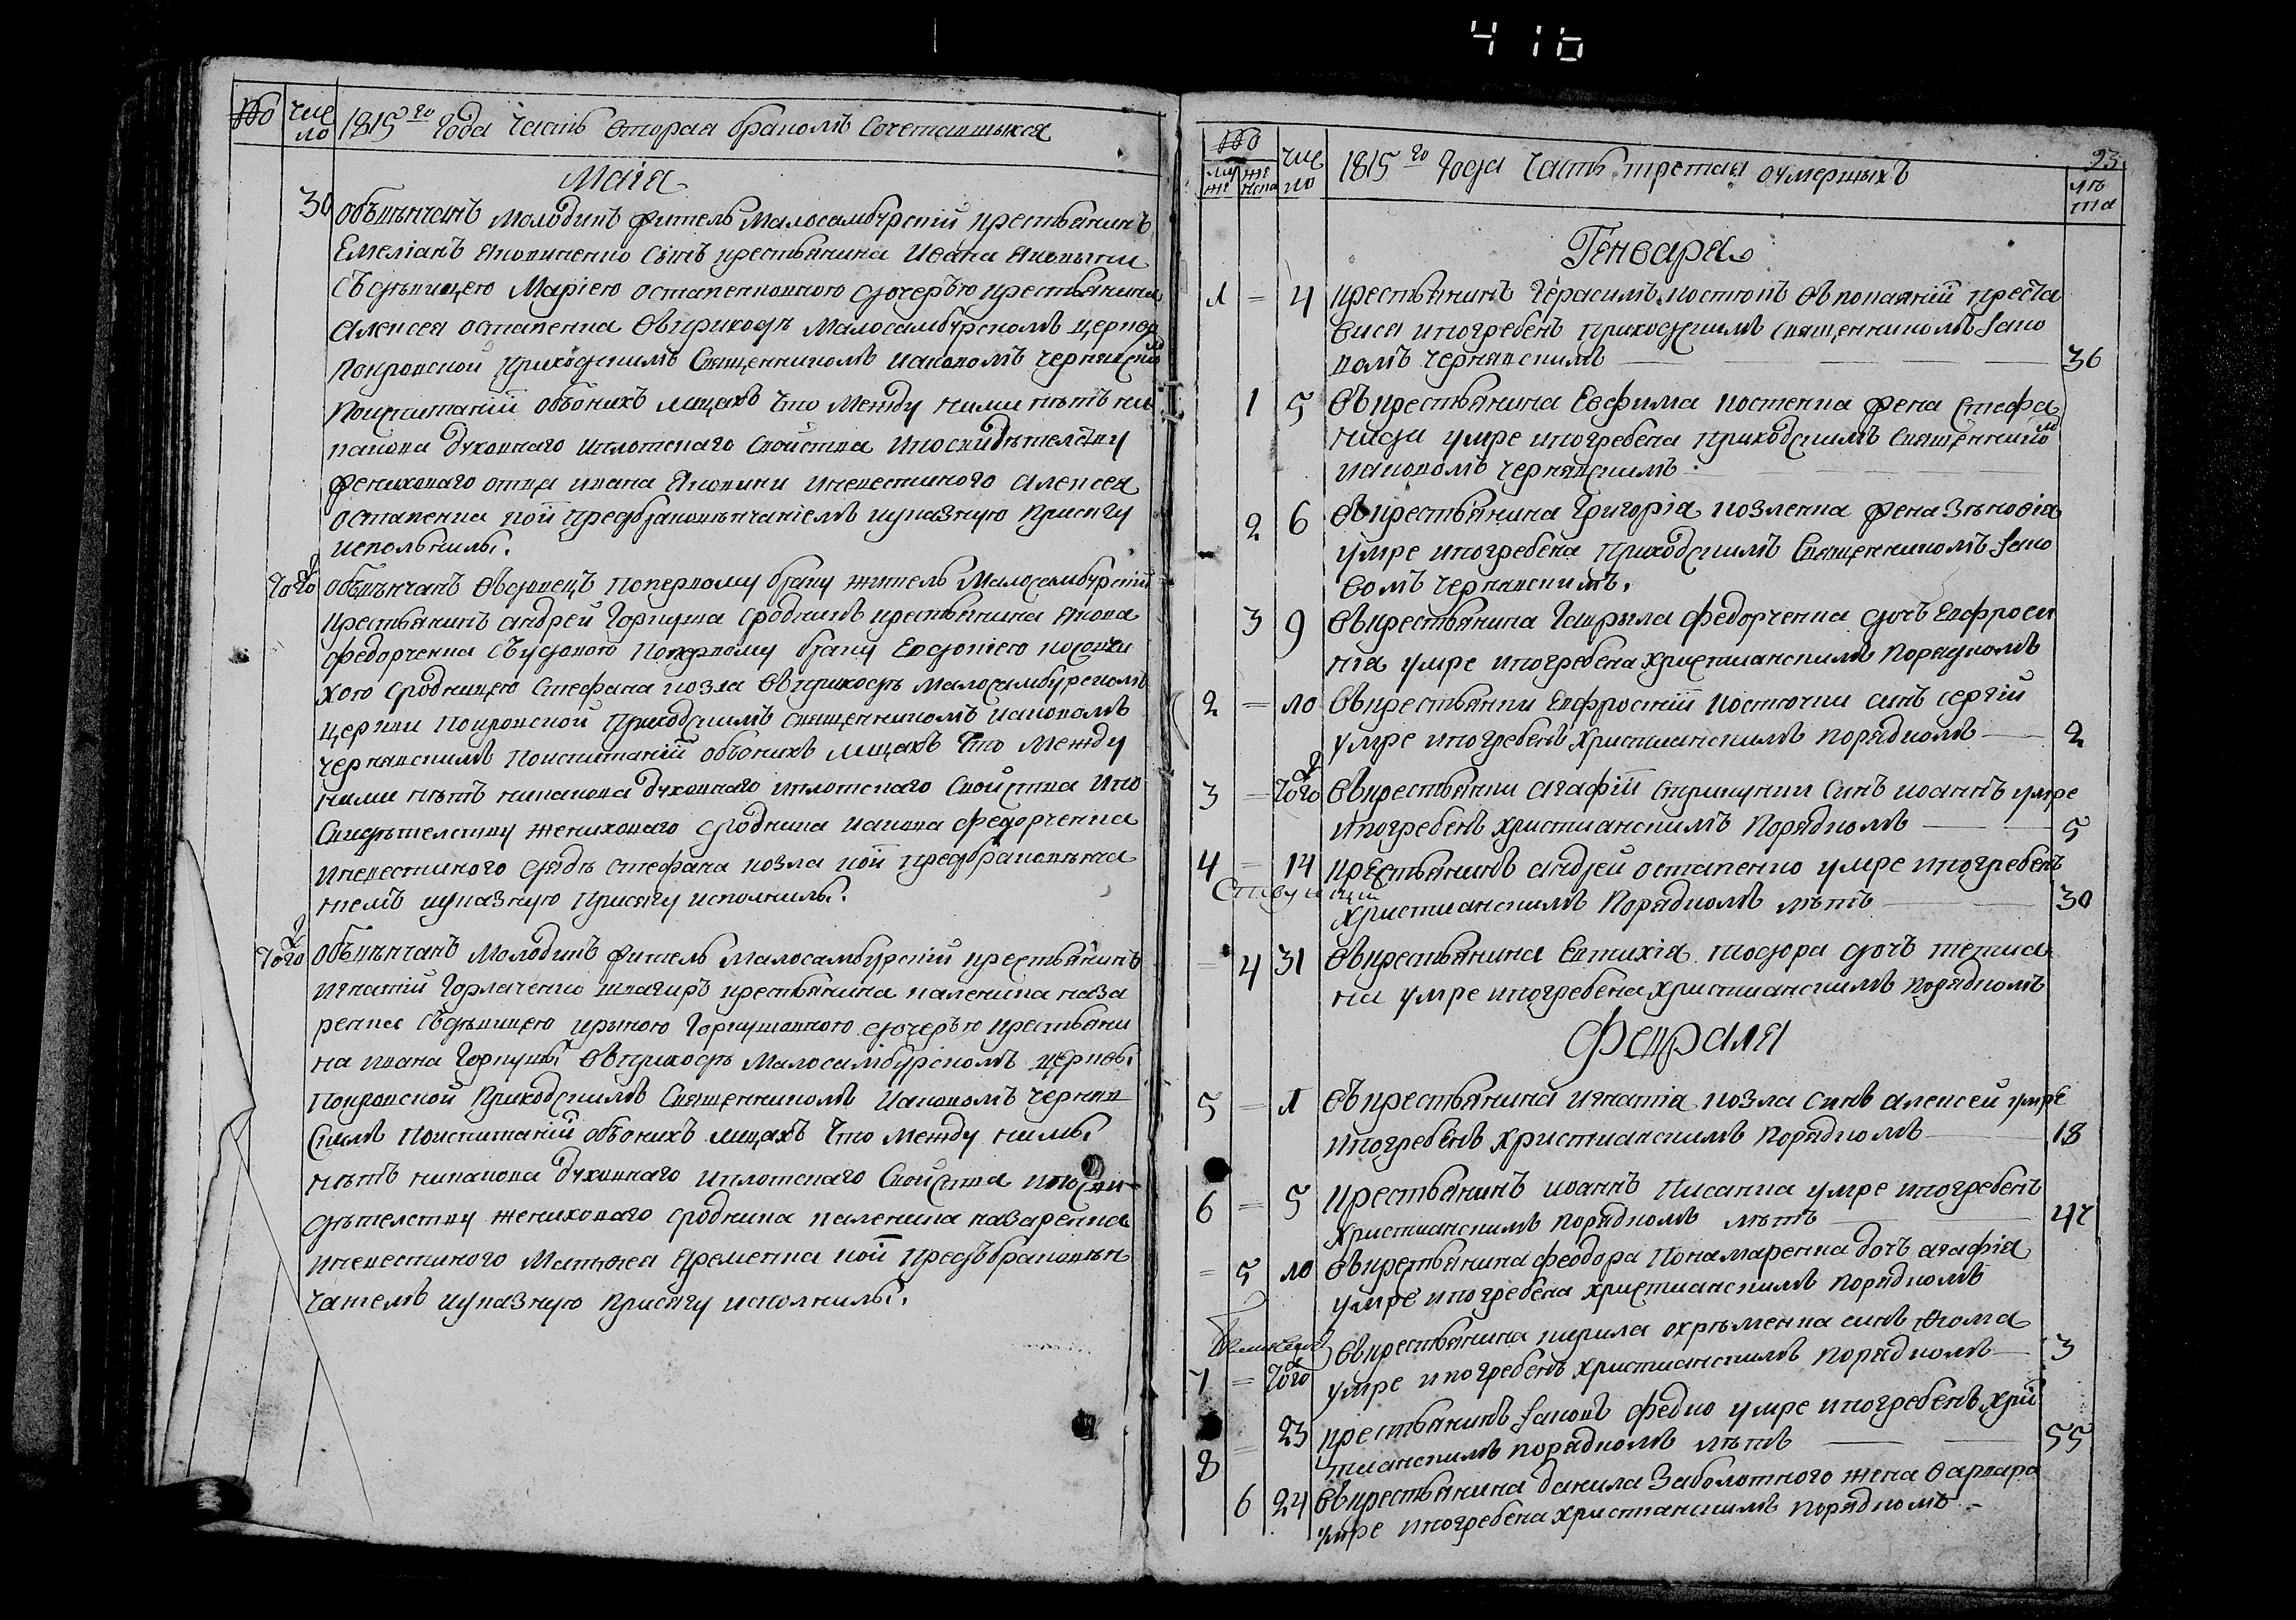 416
чис
ло
1815го Года Часть вторая бракомъ Сочетавшихся
Маіа
30
обвѣнчанъ Молодикъ житель Малосамбурскій крестьянинъ
Емеліанъ Яковченко Синъ крестьянина Ивана Яковчки
Съ дѣвицею Маріею остапенковною дочерью крестьянина
Алексея остапенка въ приходѣ Малосамбурскомъ церкви
Покровской Приходскимъ Священникомъ Іаковомъ Чернявским
По испитаніи обоихъ лицахъ что между ними нѣтъ ни
какова духовнаго и плотскаго Свойства и по свидѣтелству
жениховаго отца ивана Яковчки и невестиного алексея
остапенка кои предъ браковѣнчаніемъ и указную Присягу
исполнилы.
Того
обвѣнчанъ вдовецъ по первому браку житель Малосамбурскій
крестьянинъ андрей Горкуша сродникъ крестьянина Якова
федорченка Съ удовою По первому браку Евдокіею
хою сродницею Стефана козла въ приходѣ малосамбурскомъ
церкви Покровской Приходскимъ священникомъ иаковомъ
чернявскимъ По испитаніи обоихъ лицахъ что между
ними нѣтъ никакова духовнаго и плотскаго Свойства и по
Свидѣтелству жениховаго сродника иакова федорченка
и невестиного дядѣ стефана козла кои предъ браковѣнча
ніемъ и указную Присягу исполнилы.
Того
обвѣнчанъ Молодикъ житель Малосамбурскій крестьянинъ
игнатій Горлаченко швагиръ крестьянина каленика наза
ренка Съ дѣвицею ириною Горкушовною дочерью крестьяни
на ивана Горкуши въ приходѣ Малосамбурскомъ церквы
Покровской Приходскимъ Священникомъ Иаковомъ чернявс
Скимъ По испитаніи обоихъ лицахъ что между нимы
нѣтъ никакова духовнаго и плотскаго Свойства и по сви
дѣтелству жениховаго сродника каленика назаренка
и невестиного Матвея Яременка кои предъ браковѣн
чаніемъ и указную Присягу исполнилы.
23
му
же
же
нска
чис
ло
1815го Года Часть третая о умершихъ
лѣ
та
Генваря
1 = 4 крестьянинъ Герасимъ Костюкъ въ покаяніи преста
вися и погребенъ приходскимъ священникомъ Іако
вомъ чернявскимъ 36
1 5 въ крестьянина Евфима Костенка жена Стефа
нида умре и погребена приходскимъ Священником
иаковомъ чернявскимъ
2 6 въ крестьянина Григоріа козленка жена Зѣновіа
умре и погребена Приходскимъ Священникомъ Іако
вомъ чернявскимъ.
3 9 въ крестьянина Гаврыла федорченка дочъ Евфроси
ніа умре и погребена христианскимъ Порядкомъ
2 = 10 въ крестьянки Евфросиніи Костючки синъ сергій
умре и погребенъ христианскимъ порядкомъ 2
3 = Того въ крестьянки агафіи синъ иоаннъ умре
и погребенъ христианскимъ Порядкомъ 5
4 = 14 крестьянинъ андрей остапенко умре и погребенъ
христианскимъ Порядкомъ лѣтъ 30
= 4 31 въ крестьянина Евтихіа дочъ тетиа
на умре и погребена христианскимъ Порядкомъ
Февраля
5 = 1 въ крестьянина игнатіа козла синъ алексей умре
и погребенъ христианскимъ Порядкомъ 18
6 = 5 крестьянинъ иоаннъ Писанка умре и погребенъ
христианскимъ порядкомъ лѣтъ 47
= 5 10 въ крестьянина феодора Понамаренка дочъ агафіа
умре и погребена христианскимъ порядкомъ
7 = Того въ крестьянина кирила охрѣменка синъ
умре и погребенъ христианскимъ порядкомъ 3
8 = 23 крестьянинъ Іаковъ федко умре и погребенъ хрис
тианскимъ порядкомъ лѣтъ 55
6 24 въ крестьянина данила Заболотного жена варвара
умре и погребена христианскимъ порядкомъ